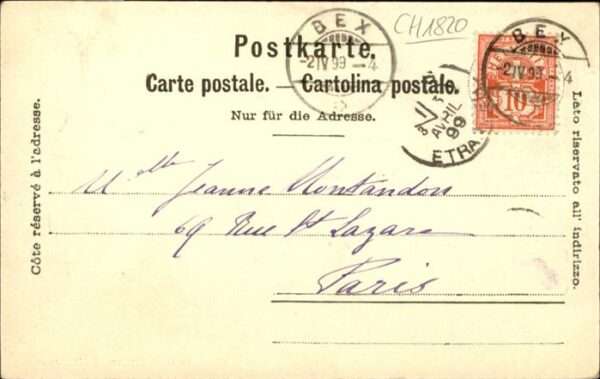 CH1820
BEX
-2IV99-4
BEX
-2IV99-4
10
AVRIL
99
ETRA
Postkarte.
Carte postale. — Cartolina postale.
Nur für die Adresse.
Côte réservé à l'adresse.
Lato riservato all' indirizzo.
Mlle Jeanne Montandon
69 Rue St Lazare
Paris